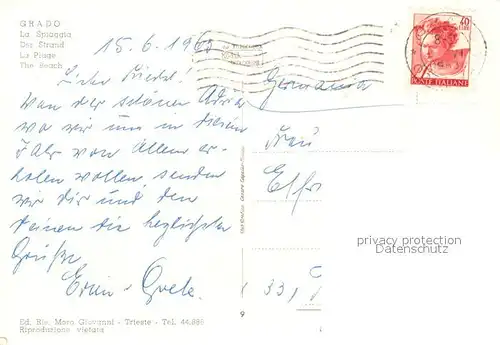 GRADO
La Spiaggia
Der Strand
La Plage
The Beach
15.6.1963
Von der schönen Adria
wo wir uns in diesem
Jahr von Allem er-
holen wollen senden
wir Dir und den
Deinen die herzlichsten
Grüße
Erwin - Grete
Germania
Frau
40
LIRE
POSTE ITALIANE
privacy protection
Datenschutz
(33)
9
Ed. Riv. Moro Giovanni - Trieste - Tel. 44.886
Riproduzione vietata